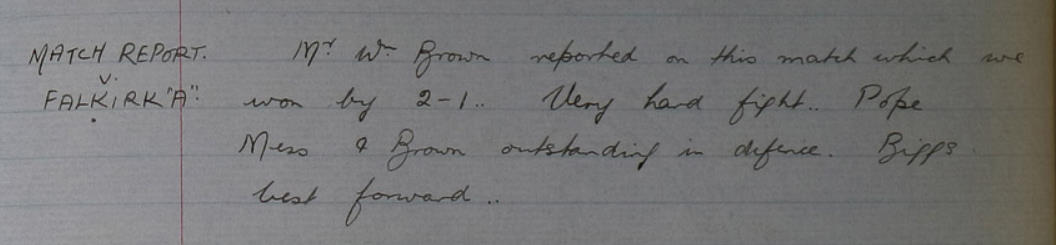 MATCH REPORT. Mr Wm Brown reported on this match which we
V.
FALKIRK "A". won by 2-1.. Very hard fight.. Pope
Mess & Brown outstanding in defence. Biggs
best forward..